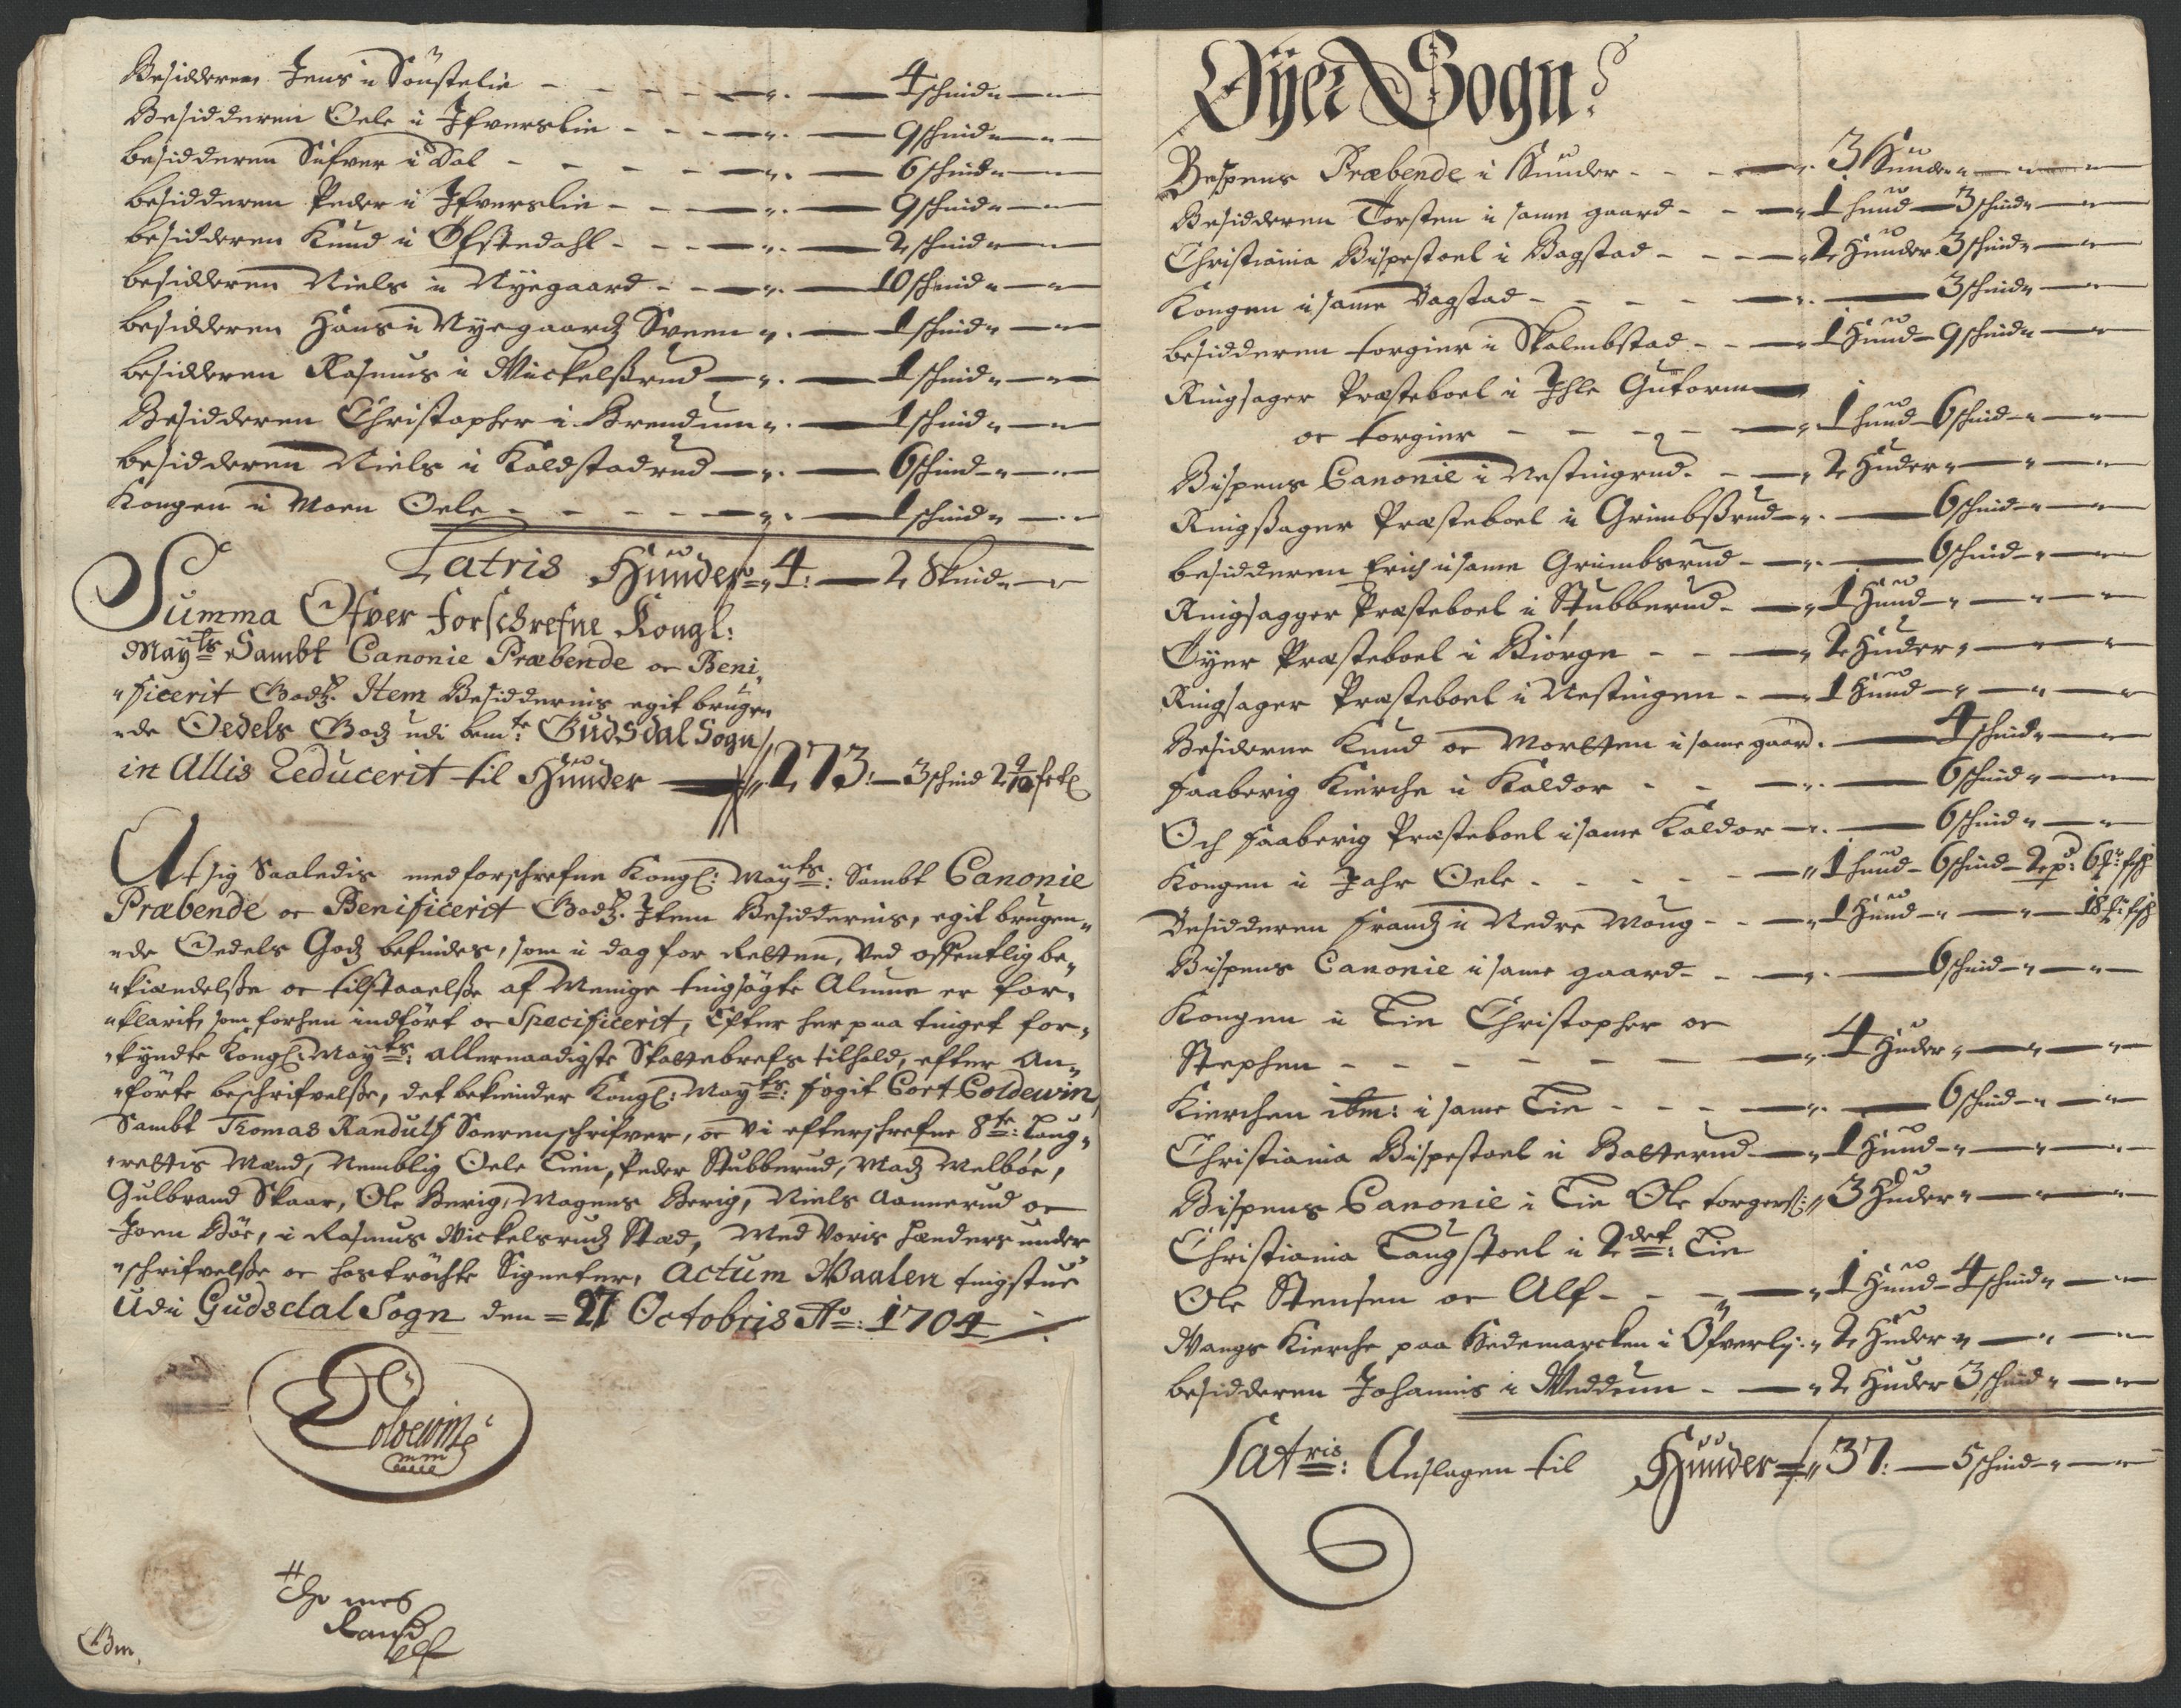 Besidderen Jens i Sönstelie - - - - 4 schind
Besidderen Oele i Ifverslie - - - 9 schind
besidderen Sifver i Dal - - - - 6 schind
besidderen Peder i Ifverslie - - - 9 schind
besidderen Knud i Öfstedahl - - - 2 schind
besidderen Niels i Nyegaard - - - 10 schind
besidderen Hans i Nyegaardz Sveen - 1 schind
besidderen Rasmus i Wickelßrud - 1 schind
Besidderen Christopher i Brendum - 1 schind
besidderen Niels i Kaldstadrud - 6 schind
Kongen i Moen Oele - - - - 1 schind
Latris Hunder 4: - 2 Skind
Summa Ofver Forschrefne Kongl:
Mayts Sambt Canonie Præbende oc Beni,
"ficerit Godtz. Item Besiddernis egit brugen
"de Oedels Godz udi bemte: Gudsdal Sogn
in Allis Reducerit til Hunder 273: - 3 schind 2 9/10
At sig Saaledis medforschrefne Kongl: Mayts: Sambt Canonie
Præbende oc Benificerit Godtz. Item Besiddernis, egit brugen"
"de Oedels Godz befindes, som i dag for Retten, ved offentlig be"
"kiændelße oc tilstaaelße af Menige tingsögte Almue er for"
"klarit, som forhen indfört oc Specificerit, Efter her paa tinget for"
"kyndte Kongl: Mayts: allernaadigste Skattebrefs tilhold, efter An"
"förte beschrifvelße, det bekiender Kongl: Mayts: fogit Cort Coldewin
Sambt Thomas Randulf Sorenschrifver, oc vi efterschrefne 8te: Laug"
"rettis Mænd, Nemblig Oele Tiin, Peder Stubberud, Madz Melböe,
Gulbrand Skaar, Ole Berig, Mogens Berig, Niels Aannerud oc
Joen Böe, i Rasmus Wickelsrudz Stæd, Med Voris hænders under
"schrifvelße oc hoströchte Signeter, Actum Waalen tingstue
Udi Gudsdal Sogn den = 27 Octobris Ao: 1704
Coldewin
mm
Thomes
Randulf
Øyer Sogn
Bespens Præbende i Hunder - - - 3 Hunder
Besidderen Torsten i same gaard - - 1 hund - 3 schind
Christiania Bispestoel i Bagstad - - - 2 Hunder 3 schind
Kongen i same Bagstad - - - - 3 schind
besidderen torgier i Skalmbstad - - 1 Hund - 9 schind
Ringsager Præsteboel i Ihle Gutorm
oc torgier - - - - 1 hund 6 schind
Bispens Canonie i Nestingrud - - 2 Huder
Ringßager Præsteboel i Grimbßrud - 6 schind
besidderen Erich i same Grimbsrud - 6 schind
Ringsagger Præsteboel i Stubberud - 1 Hund
Öyer Præsteboel i Biörge - - 2 Huder
Ringsager Præsteboel i Nestingen - 1 Hund
Besiderne Knud oc Mortten i same gaard - 4 schind
Faaberig Kierche i Kaldor - - 6 schind
Och Faaberig Præsteboel i same Kaldor - 6 schind
Kongen i Jahr Oele - - - - 1 hund - 6 schind - 2 pd: 6 fisch
Besidderen Frandz i Nedre Moug - - 1 Hund - 18 fisch
Bispens Canonie i same gaard - - 6 schind
Kongen i Tiin Christopher oc
Stephen - - - - - 4 Huder
Kierchen ibm: i same Tin - - - 6 schind
Christiania Bispestoel i Batterud - 1 Hund
Bispens Canonie i Tin Ole torgerß: 3 Huder
Christiania Laugstoel i 2det: Tin
Ole Stensen oc Alf - - - 1 Hund - 4 schind
Wangs Kierche paa Hedemarcken i Öfverlj: 2 Huder
besidderen Johannis i Weddum - - 2 Huder 3 schind
Latris: Anslagen til Hunder 37: - 5 schind